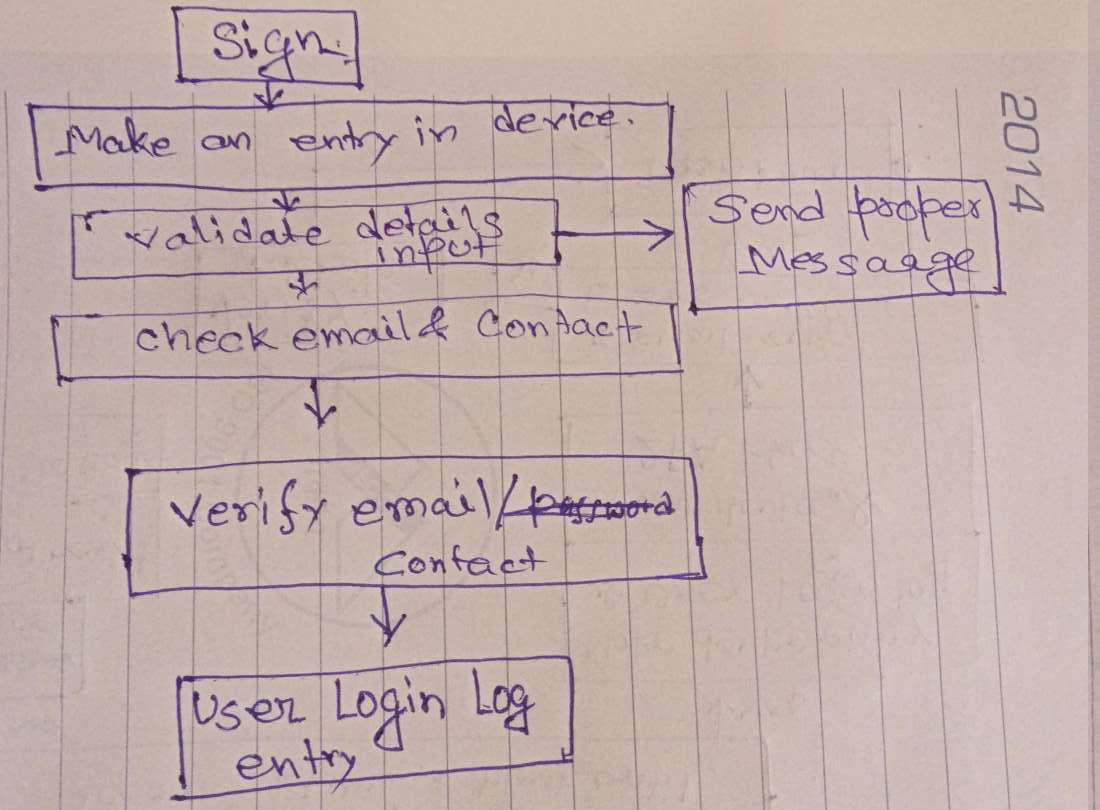 Sign.
Make an entry in device.
Validate details
input
Send proper
Messaage
check email & Contact
Verify email/password
Contact
User Login Log
entry
2014